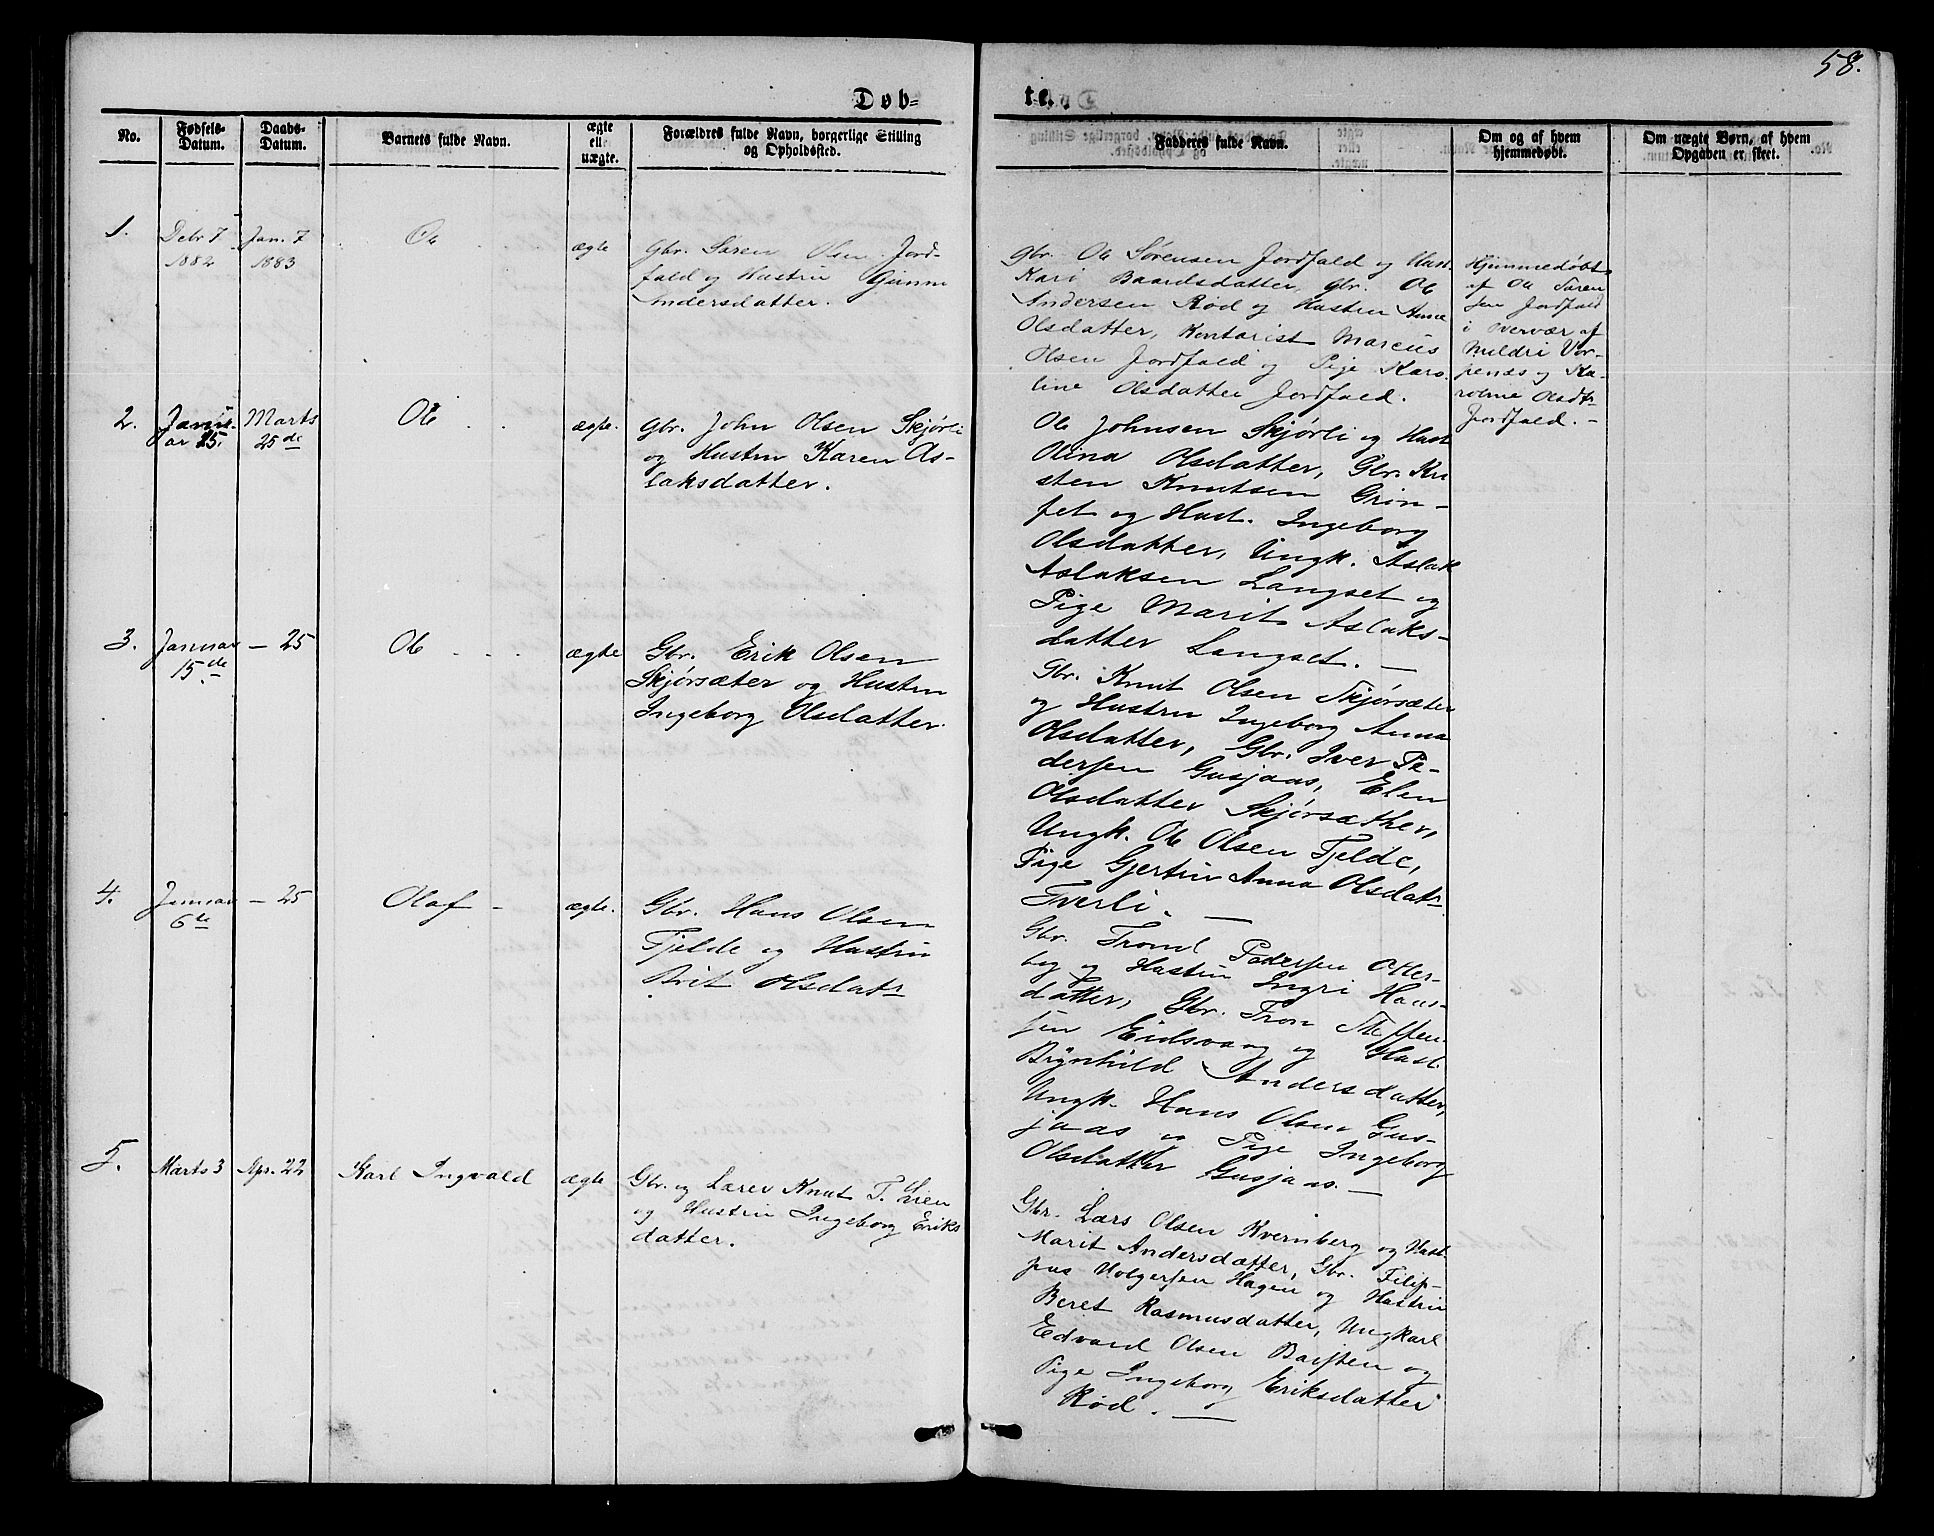 58.
Døb-
te.
No.
Fødsels-
Datum.
Daabs-
Datum.
Barnets fulde Navn.
ægte
ell.
uægte.
Forældres fulde Navn, borgerlige Stilling
og Opholdssted.
Fadderes fulde Navn.
Om og af hvem
hjemmedøbt.
Om uægte Børn, af hvem
Opgaven er skeet.
1.
Debr 7
1882
Jan. 7
1883
Ole
ægte
Gbr. Søren Olsen Jord-
fald og Hustru
Andersdatter.
Gbr. Ole Sørensen Jordfald og Hust.
Kari Baardsdatter, Gbr. Ole
Andersen Rød og Hustru Anne
Olsdatter, Kontorist Marcus
Olsen Jordfald og Pige Karo-
line Olsdatter Jordfald.
Hjemmedøbt
af Ole Søren
sen Jordfald
i Overvær af
Mildri Vor-
penæs og Ka-
roline Olsdtr
Jordfald. -
2.
Janu-
ar 25.
Marts
25de
Ole
ægte.
Gbr. John Olsen Skjørli
og Hustru Karen As-
laksdatter.
Ole Johnsen Skjørli og Hust
Olina Olsdatter, Gbr. Kri
sten Knutsen Grin-
set og Hust. Ingeborg
Olsdatter, Ungk. Aslak
Aslaksen Langset og
Pige Marit Aslaks-
datter Langset. -
3.
Januar
15de
- 25
Ole
ægte
Gbr. Erik Olsen
Skjørsæter og Hustru
Ingeborg Olsdatter.
Gbr. Knut Olsen Skjørsæter
og Hustru Ingeborg Anna
Olsdatter, Gbr. Iver Pe-
dersen Gusjaas, Elen
Olsdatter Skjørsæther,
Ungk. Ole Olsen Fjelde,
Pige Gjertru Anna Olsdatr
Tverli. -
4.
Januar
6te
- 25
Olaf -
ægte.
Gbr. Hans Olsen
Fjelde og Hustru
Brit Olsdatr
Gbr. Trond Pedersen Otter-
og Hustru Ingri Hans-
datter, Gbr. Tron Steffen
sen Eidsvaag og Hust.
Brynhild Andersdatter,
Ungk. Hans Olsen Gus-
jaas og Pige Ingeborg
Olsdatter Gusjaas. -
5.
Marts 3
Apr. 22
Karl Ingvald
ægte
Gbr. og Lærer Knut T. Lien
og Hustru Ingeborg Eriks
datter.
Gbr. Lars Olsen Kvernberg og Hust
Marit Andersdatter, Gbr. Filip-
pus Holgersen Hagen og Hustru
Beret Rasmusdatter, Ungkarl
Edvard Olsen Baisten og
Pige Ingeborg Eriksdatter
Rød. -